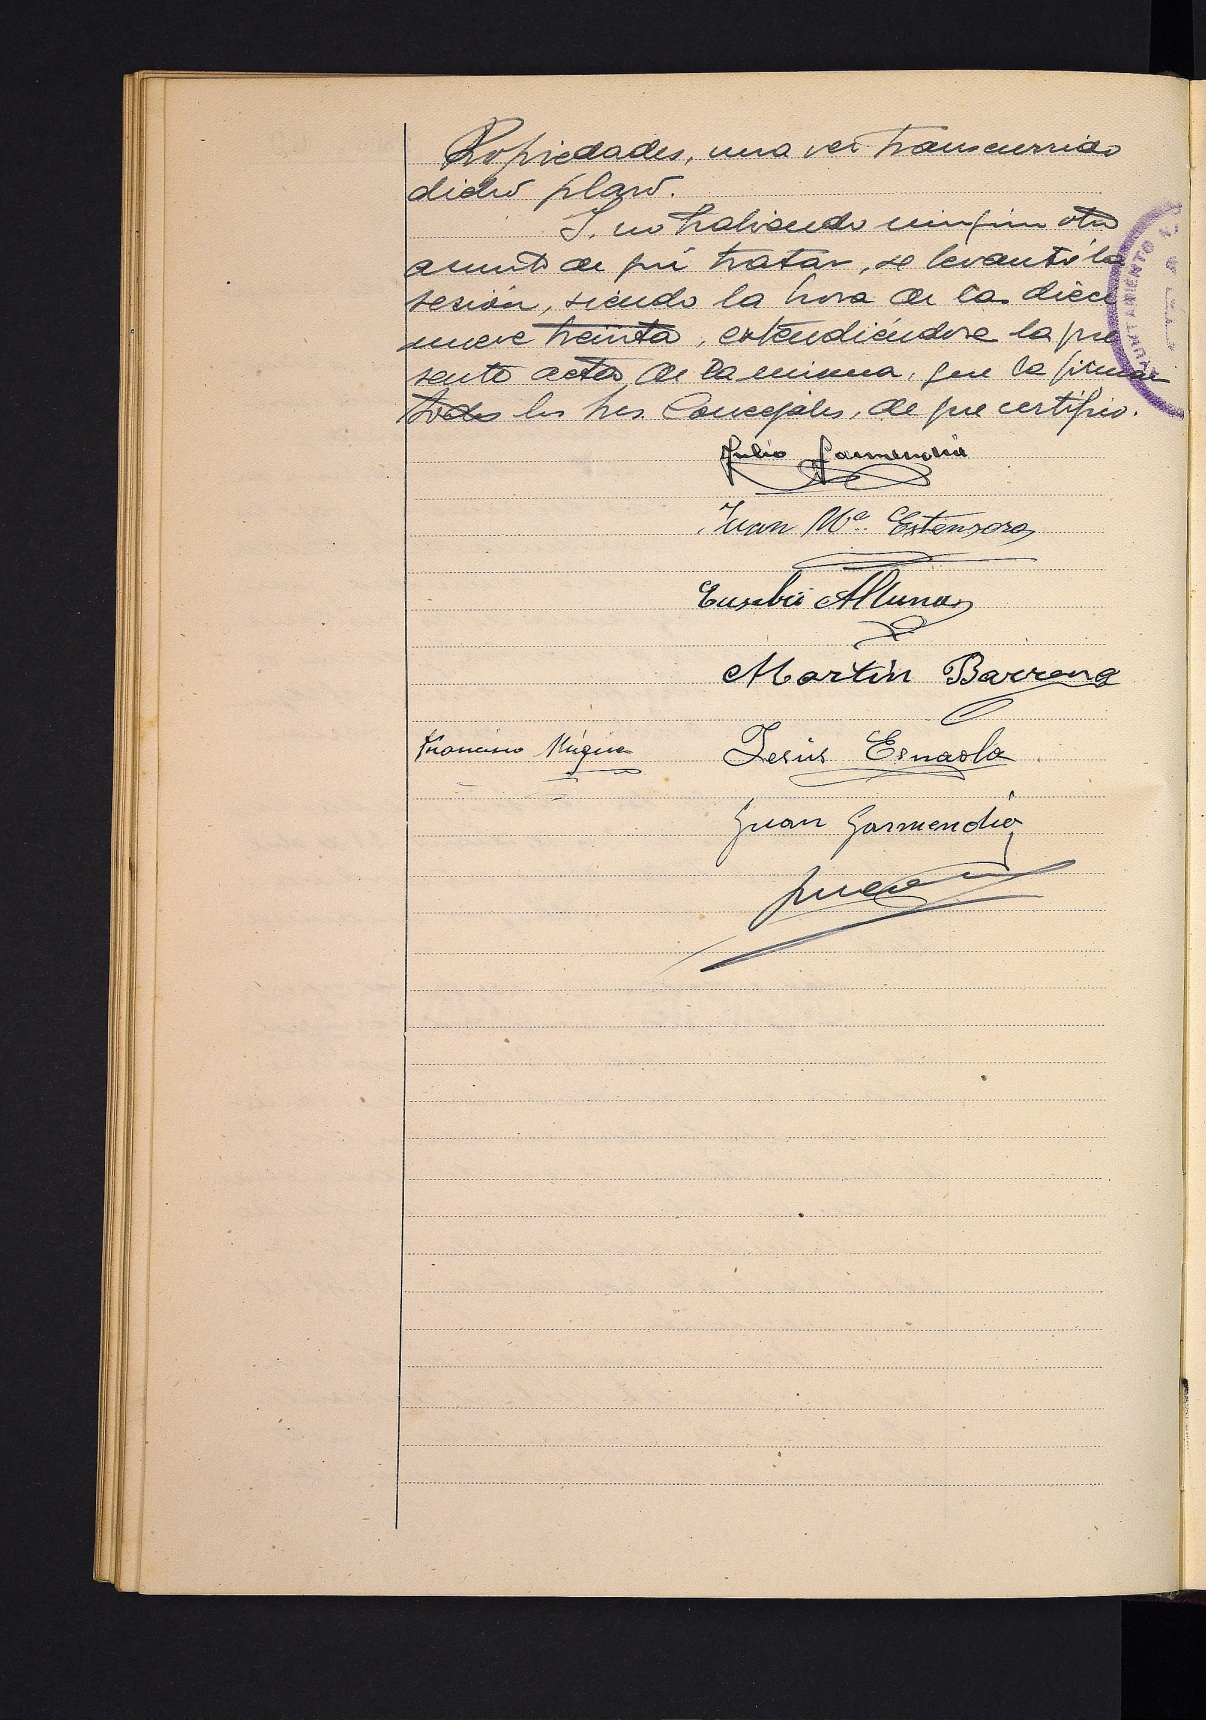 Propiedades, una vez transcurrido
dicho plazo.
Y, no habiendo ningún otro
asunto de qué tratar, se levantó la
sesión, siendo la hora de las diez
nueve treinta, extendiéndose la pre
sente acta de la misma, que la firman
todos los tres Concejales, de que certifico.
Julio Garmendia
Juan Mª. Estensoro
Eusebio Altuna
Martín Barrena
Francisco Múgica Jesús Esnaola
Juan Garmendia
AYUNTAMIENTO